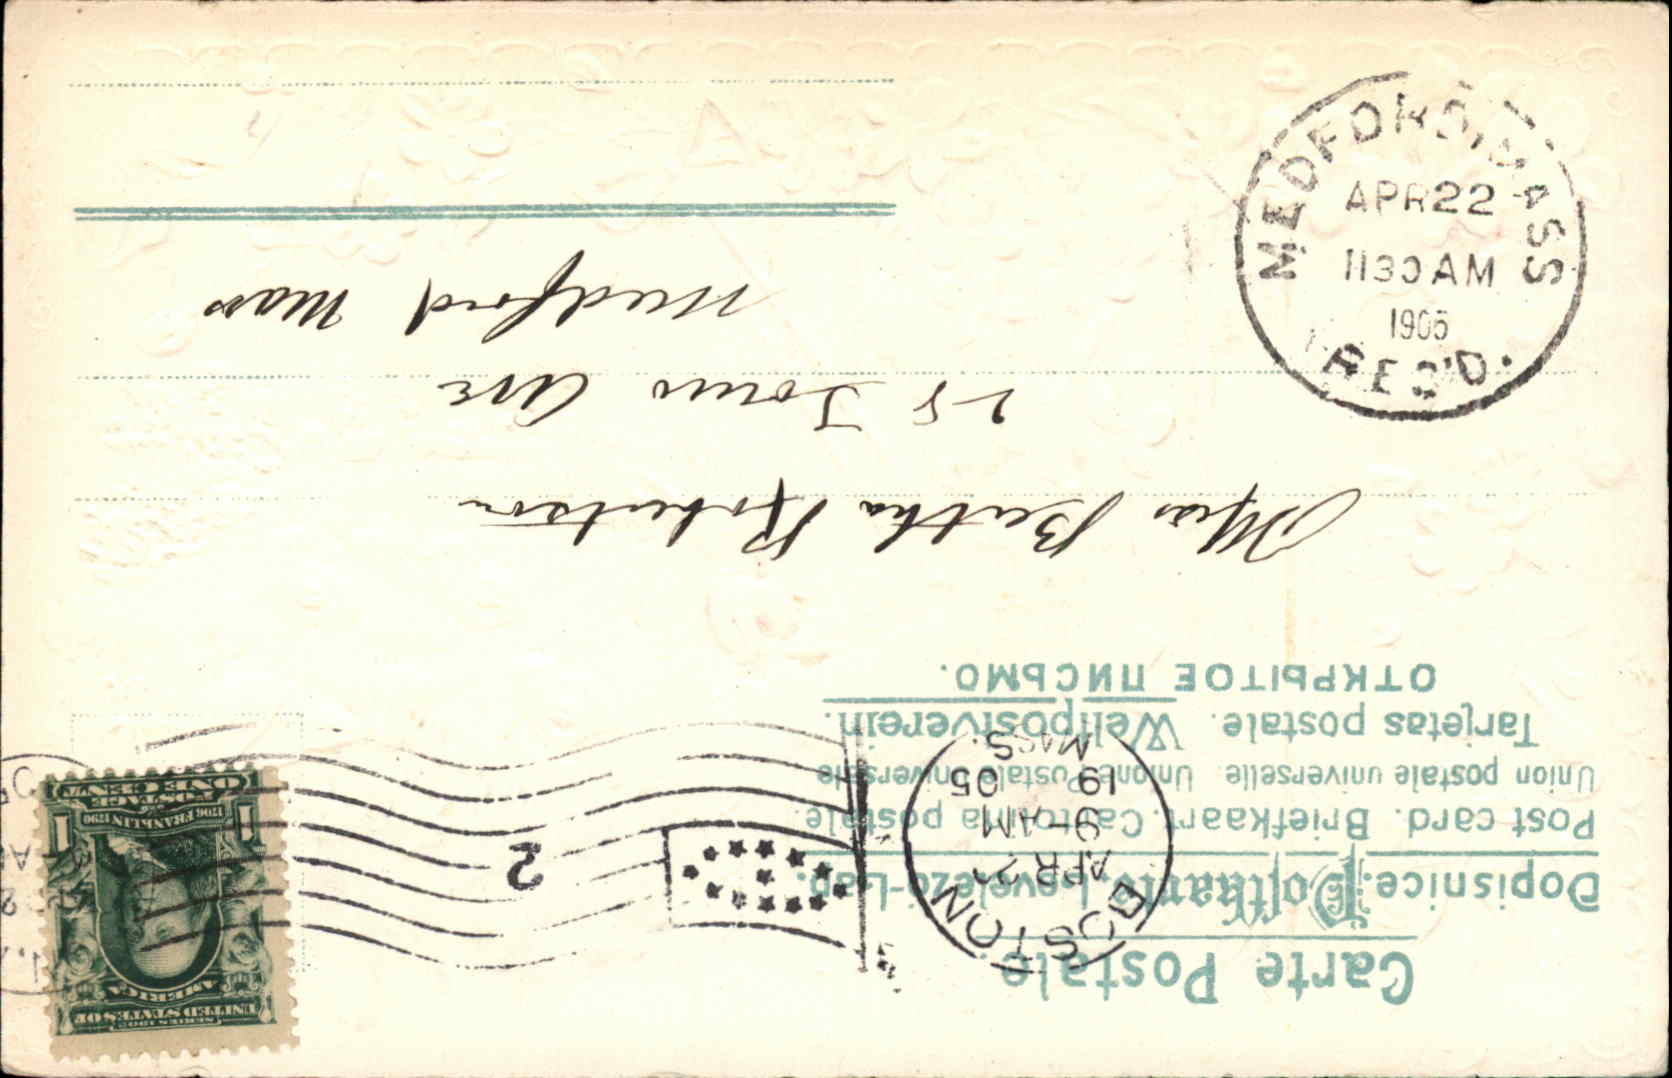 Carte Postale.
Dopisnice. Postkarte. Levelezö-Lap.
Post card. Briefkaart. Cartolina postale
Union postale universelle Unione Postale Universale
Tarjetas postale. Weltpostverein.
ОТКРЫТОЕ ПИСЬМО.
BOSTON
APR 22
9-AM
19 05
MASS.
2
SERIES 1902
UNITED STATES OF
AMERICA
1706 FRANKLIN 1790
1 1
POSTAGE
ONE CENT
Miss Bertha Robertson
28 Ave
Medford Mass
MEDFORD, MASS
APR 22
1130 AM
1905
REC'D.